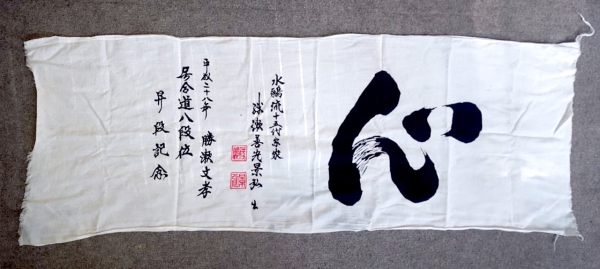 心
水鷗流十五代宗家
勝瀬善光景弘 出
平成二十八年 勝瀬文孝
居合道八段位
昇段記念